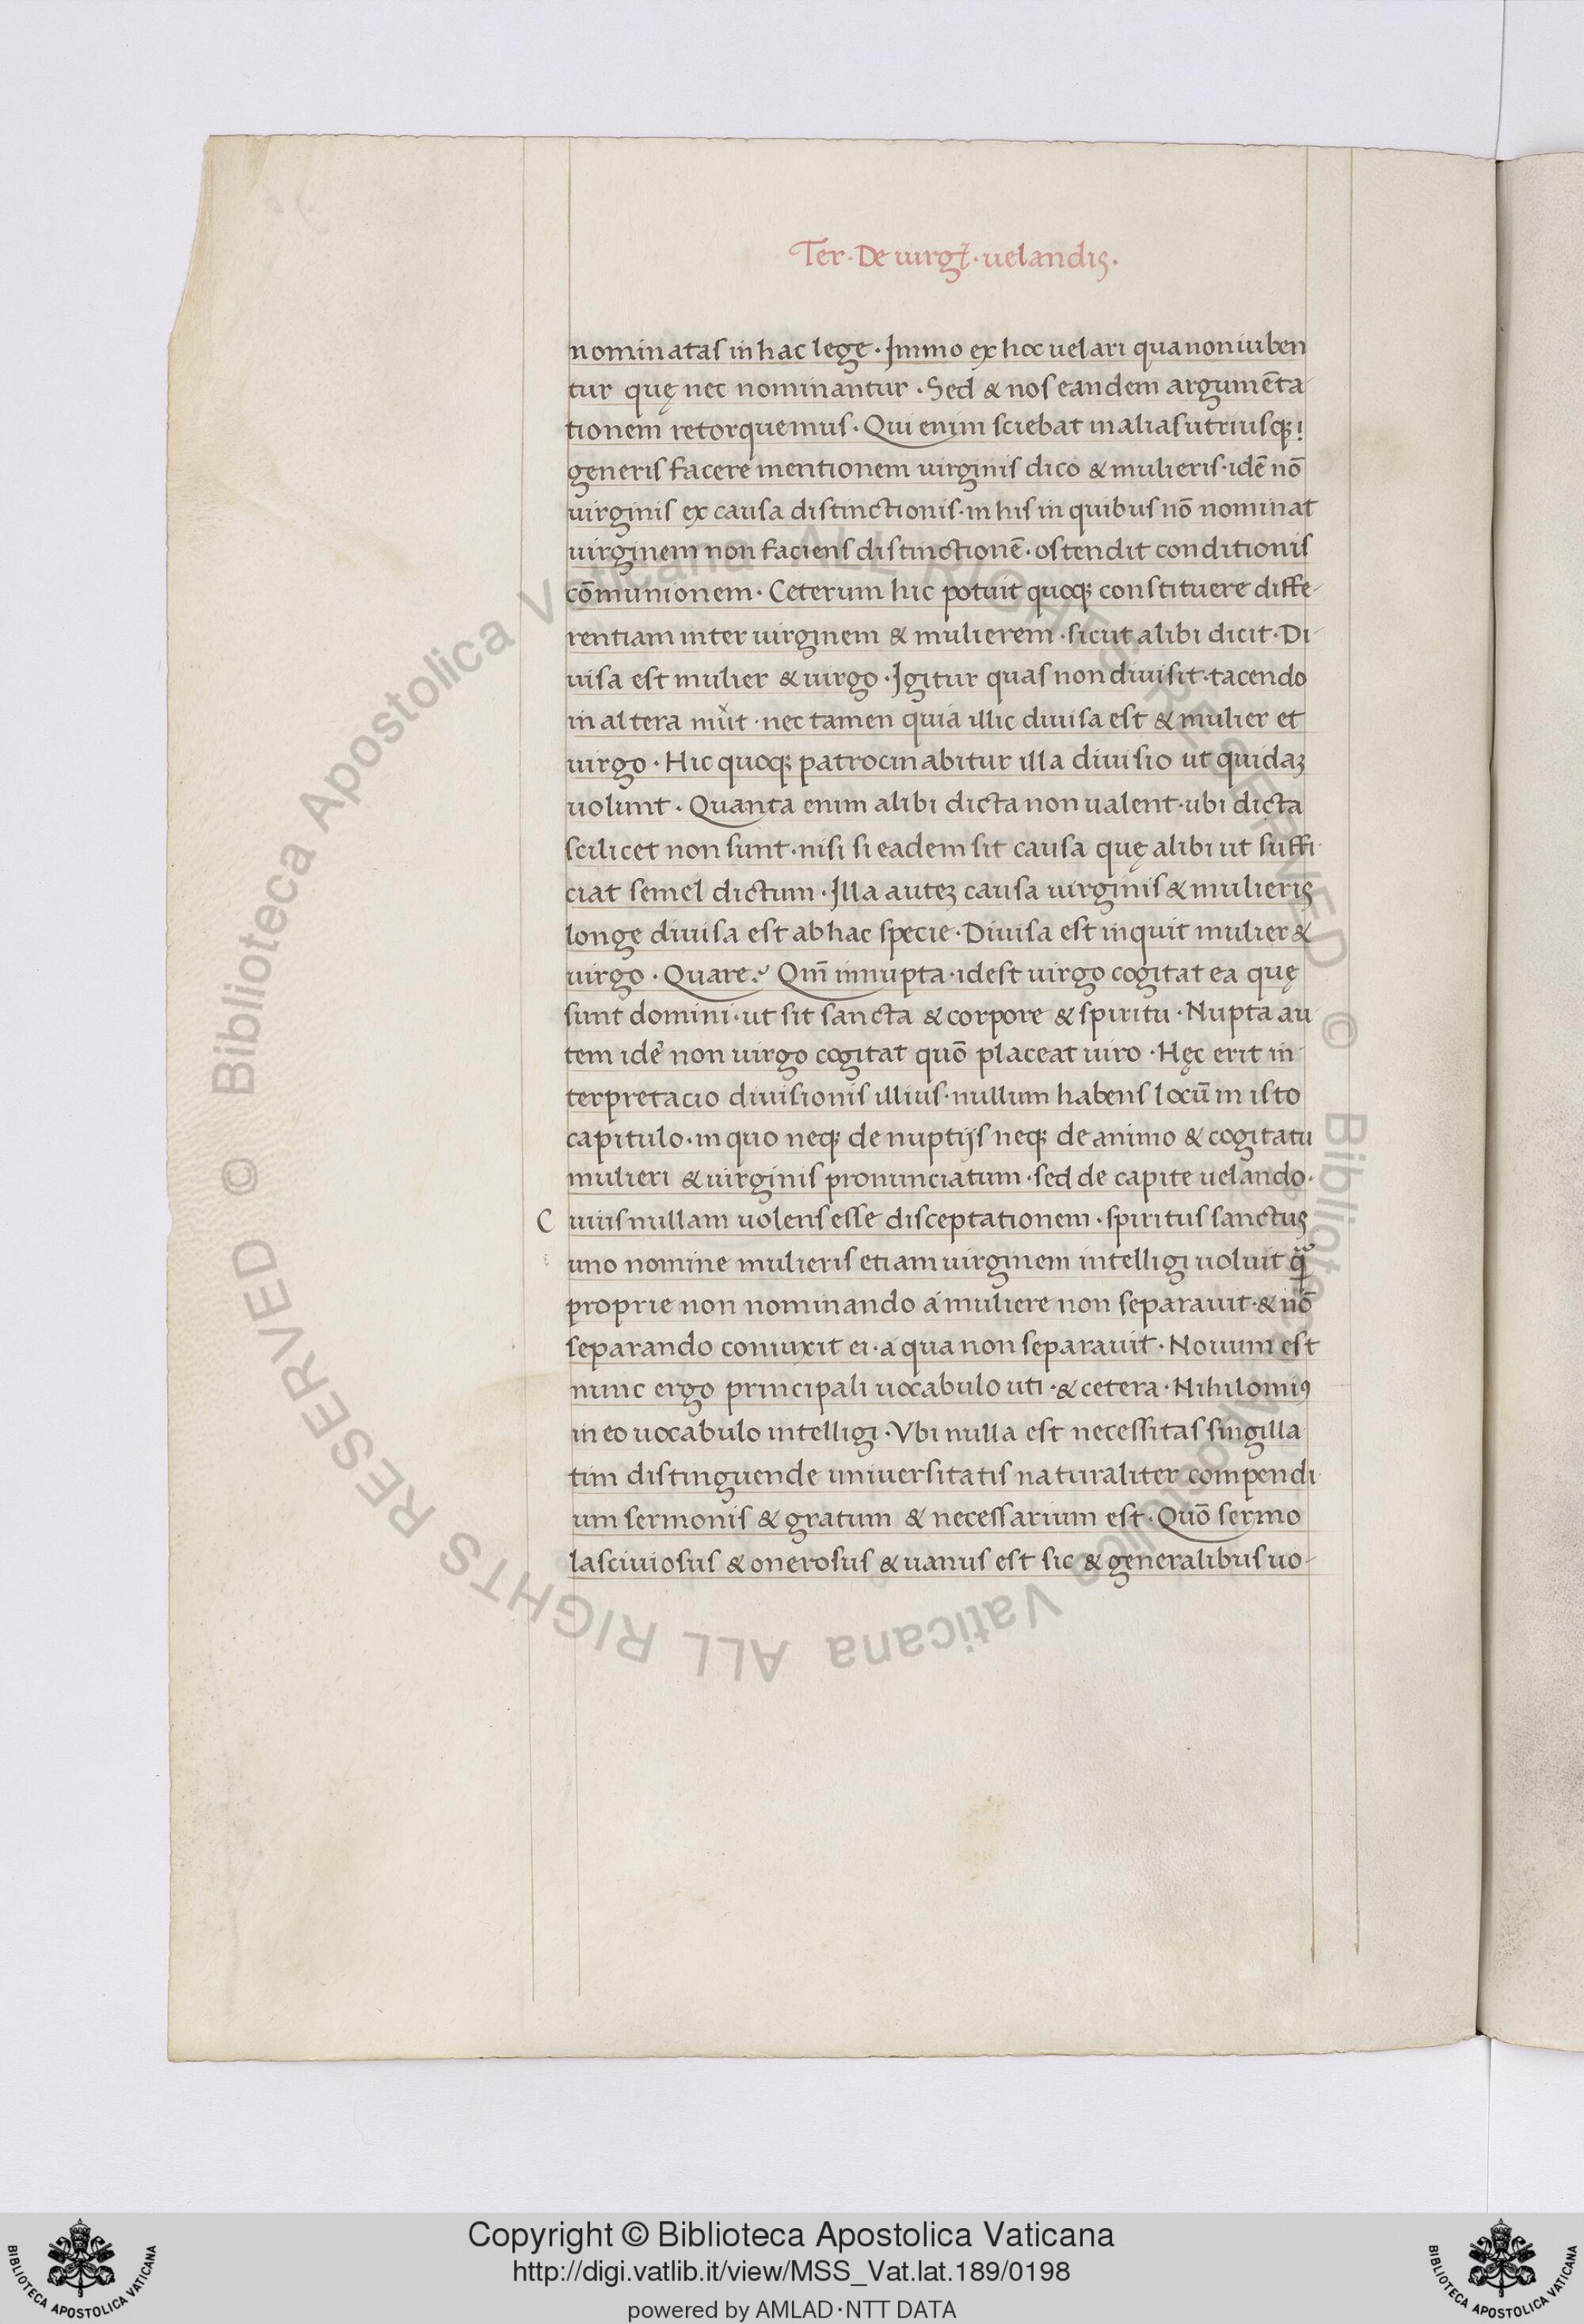 Ter · De uirgĩ · uelandis ·
nominatas in hac lege · Immo ex hoc uelari qua non iuben
tur quę nec nominantur · Sed & nos eandem argumẽta
tionem retorquemus · Qui enim sciebat in alias utriusqꝫ
generis facere mentionem uirginis dico & mulieris · idẽ nõ
uirginis ex causa distinctionis · in his in quibus nõ nominat
uirginem non faciens distinctionẽ · ostendit conditionis
cõmunionem · Ceterum hic potuit quoqꝫ constituere diffe-
rentiam inter uirginem & mulierem · sicut alibi dicit · Di-
uisa est mulier & uirgo · Igitur quas non diuisit · tacendo
in altera · nec tamen quia illic diuisa est & mulier et
uirgo · Hic quoqꝫ patrocinabitur illa diuisio ut quidaꝫ
uolunt · Quanta enim alibi dicta non ualent · ubi dicta
scilicet non sunt · nisi si eadem sit causa quę alibi ut suffi-
ciat semel dictum · Illa auteꝫ causa uirginis & mulieris
longe diuisa est ab hac specie · Diuisa est inquit mulier &
uirgo · Quare? Qm̃ innupta · idest uirgo cogitat ea quę
sunt domini · ut sit sancta & corpore & spiritu · Nupta au
tem idẽ non uirgo cogitat quõ placeat uiro · Hęc erit in-
terpretacio diuisionis illius · nullum habens locũ in isto
capitulo · in quo neqꝫ de nuptijs neqꝫ de animo & cogitatu
mulieri & uirginis pronunciatum · sed de capite uelando ·
C uius nullam uolens esse disceptationem · spiritus sanctus
uno nomine mulieris etiam uirginem intelligi uoluit qᷓ
proprie non nominando á muliere non separauit · & nõ
separando coniuxit ei · a qua non separauit · Nouum est
nunc ergo principali uocabulo uti · & cetera · Nihilomiꝰ
in eo uocabulo intelligi · Vbi nulla est necessitas singilla
tim distinguende uniuersitatis naturaliter compendi
um sermonis & gratum & necessarium est · Quõ sermo
lasciuiosus & onerosus & uanus est sic & generalibus uo-
© Biblioteca Apostolica Vaticana ALL RIGHTS RESERVED
© Biblioteca Apostolica Vaticana ALL RIGHTS RESERVED
Copyright © Biblioteca Apostolica Vaticana
http://digi.vatlib.it/view/MSS_Vat.lat.189/0198
powered by AMLAD·NTT DATA
BIBLIOTECA APOSTOLICA VATICANA
BIBLIOTECA APOSTOLICA VATICANA